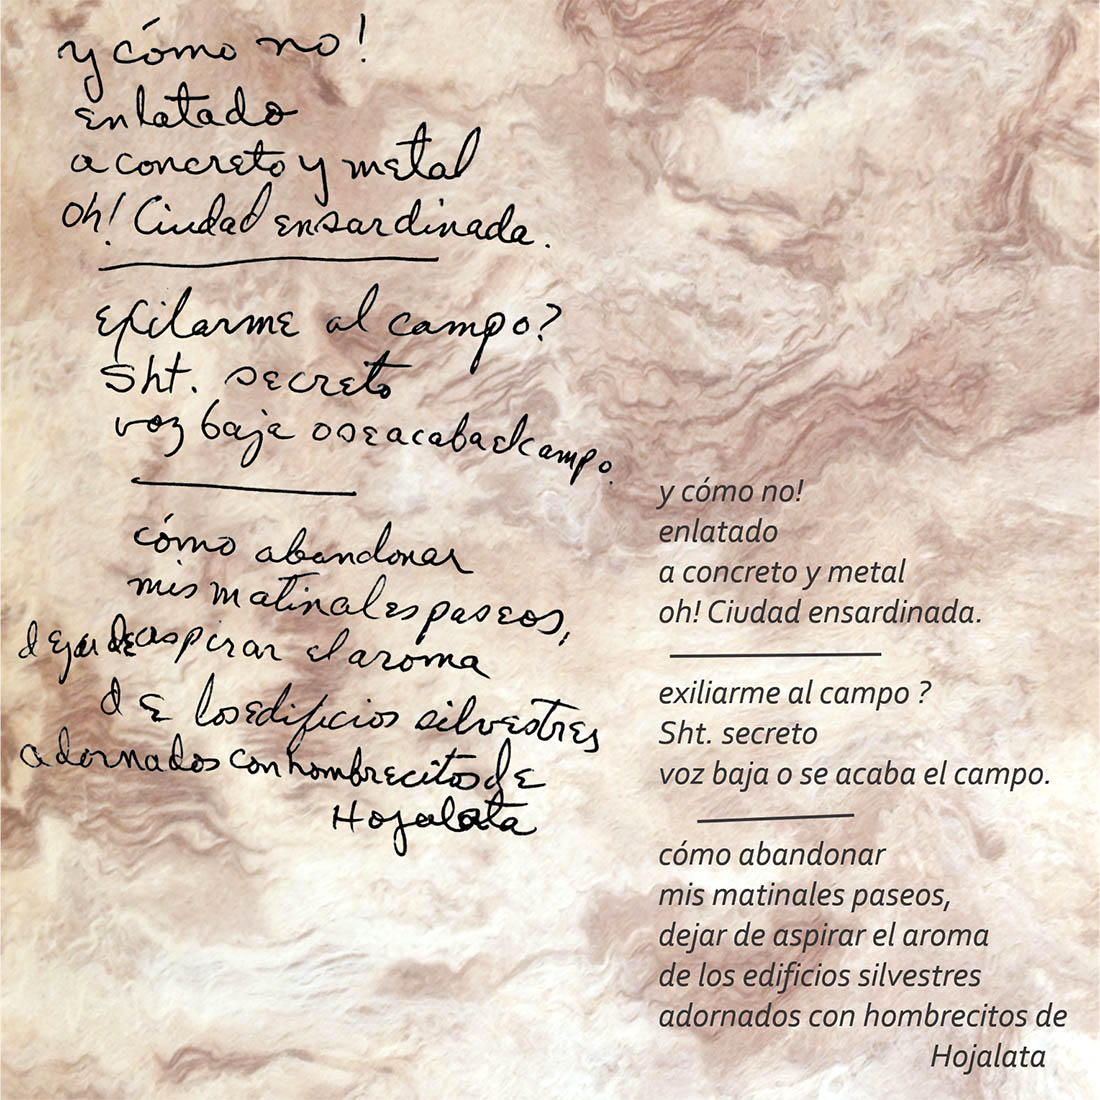 y cómo no!
enlatado
a concreto y metal
oh! Ciudad ensardinada.
exilarme al campo?
Sht. secreto
voz baja o se acaba el campo.
cómo abandonar
mis matinales paseos,
dejar de aspirar el aroma
de los edificios silvestres
adornados con hombrecitos de
Hojalata
y cómo no!
enlatado
a concreto y metal
oh! Ciudad ensardinada.
exiliarme al campo ?
Sht. secreto
voz baja o se acaba el campo.
cómo abandonar
mis matinales paseos,
dejar de aspirar el aroma
de los edificios silvestres
adornados con hombrecitos de
Hojalata